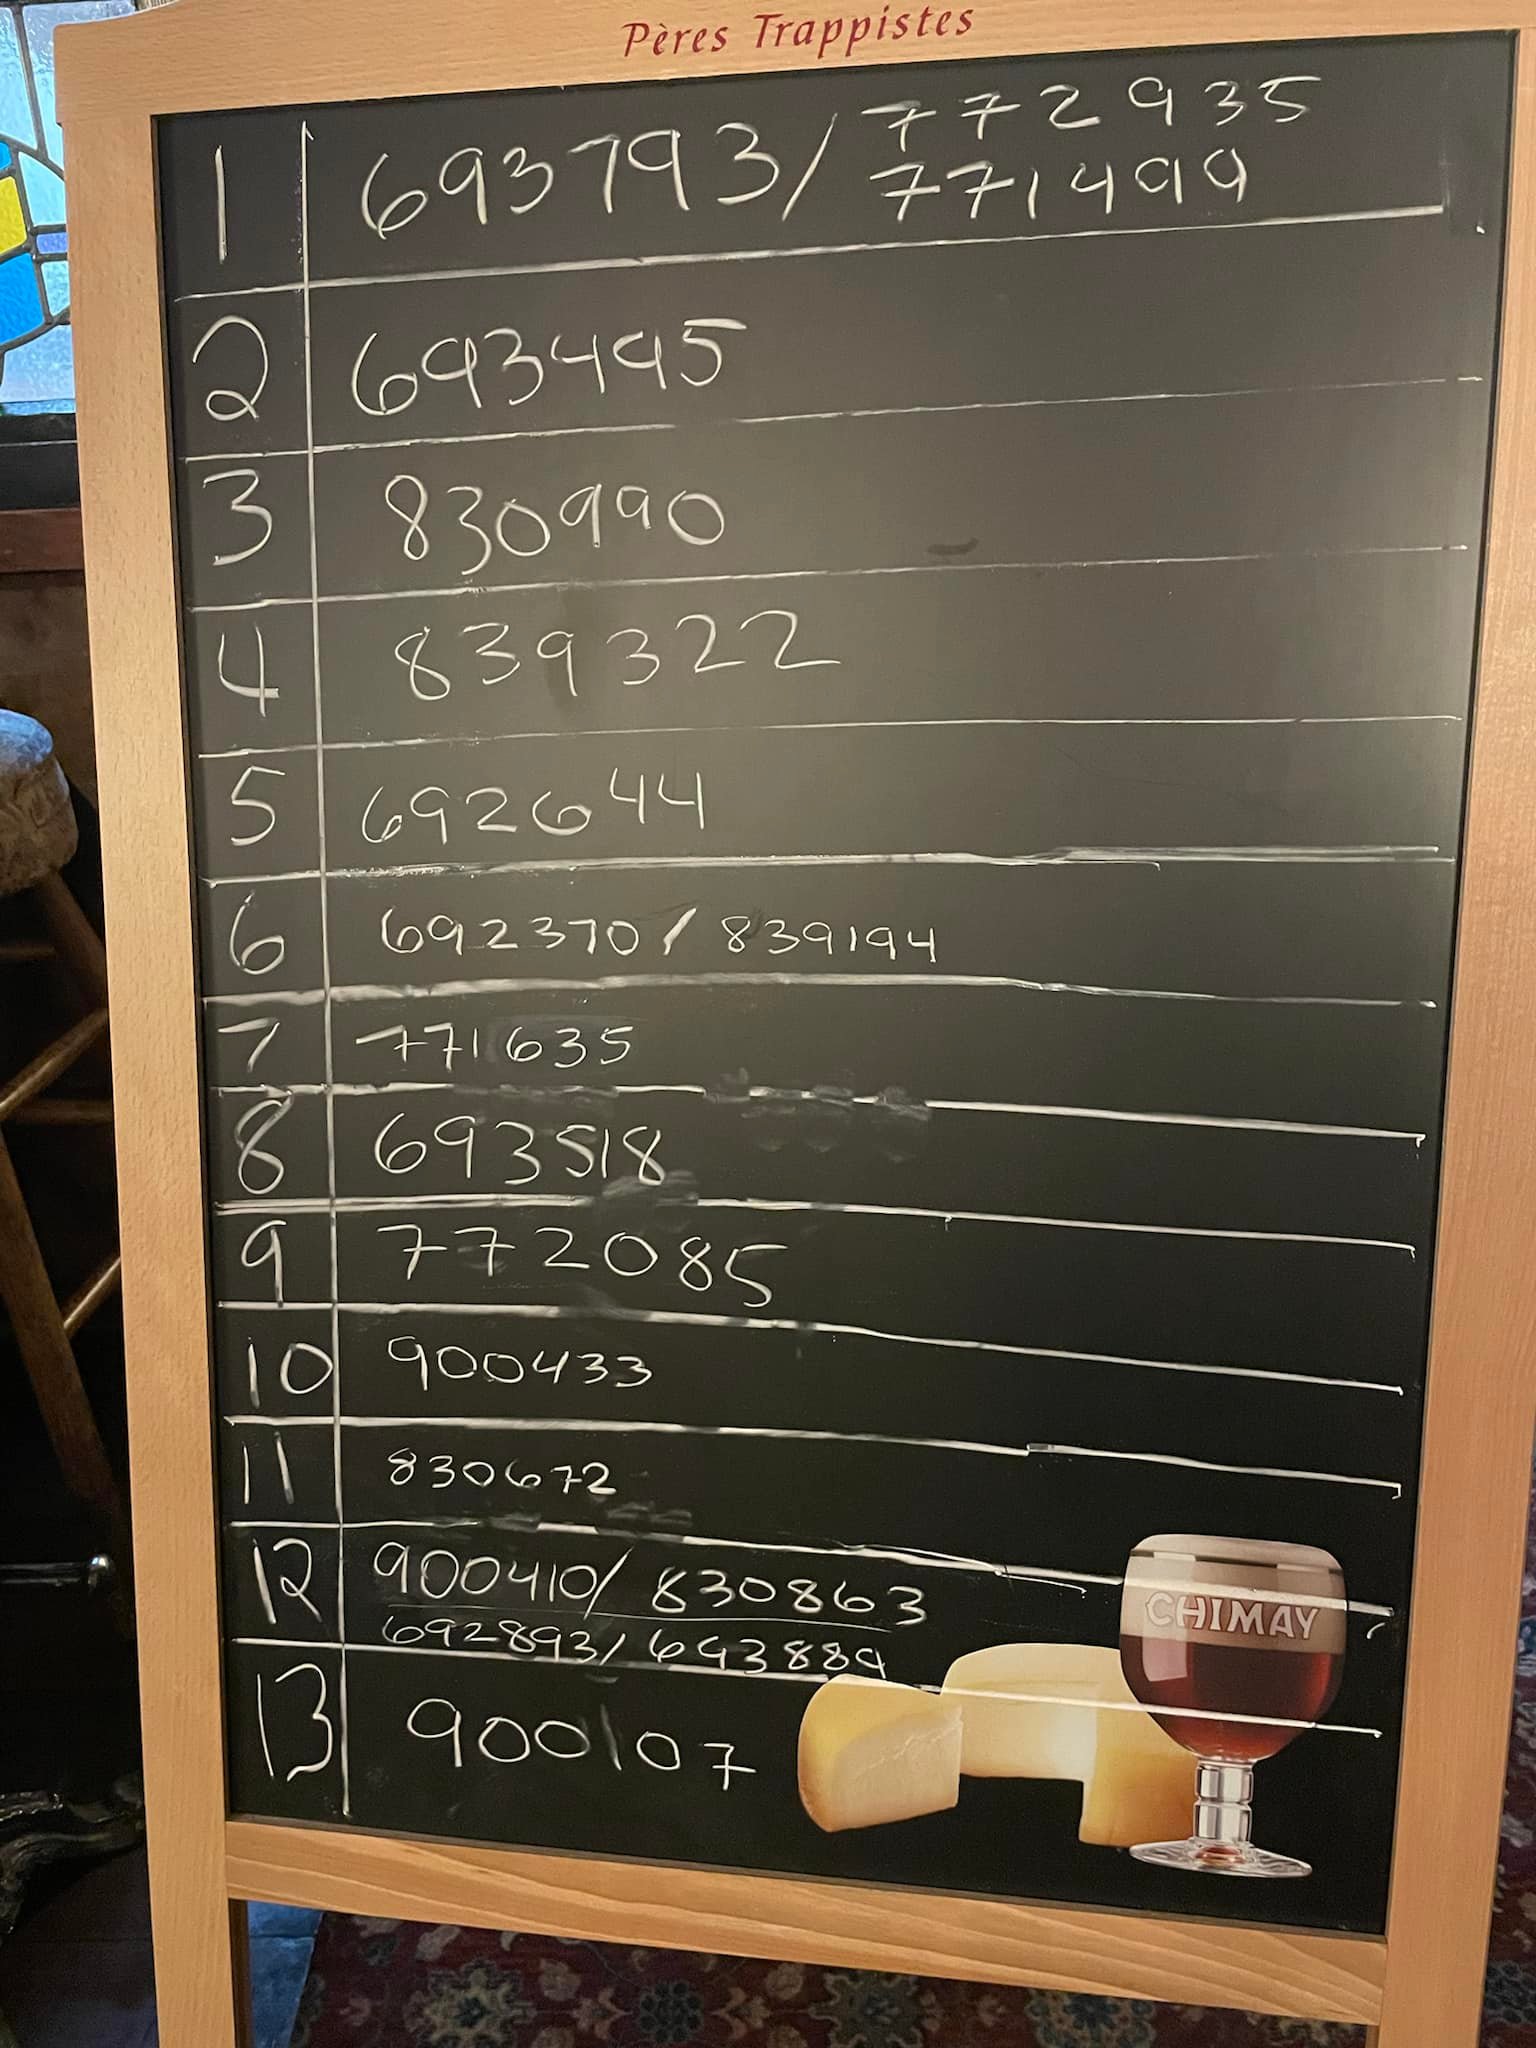 Pères Trappistes
1 693793/ 772935
771499
2 693495
3 830990
4 839322
5 692644
6 692370 / 839194
7 771635
8 693518
9 772085
10 900433
11 830672
12 900410/ 830863
692893/ 693889
13 900107
CHIMAY